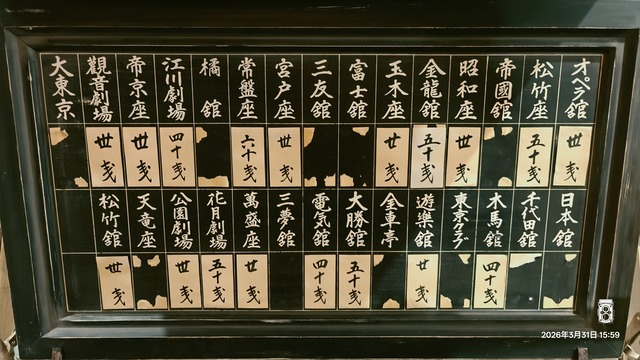 オペラ館
丗戋
松竹座
五十戋
帝國館
昭和座
丗戋
金龍館
五十戋
玉木座
丗戋
富士館
三友館
宮戸座
丗戋
常盤座
六十戋
橘館
江川劇場
四十戋
帝京座
丗戋
觀音劇場
丗戋
大東京
日本館
千代田館
木馬館
四十戋
東京クラブ
遊樂館
丗戋
金車亭
大勝館
五十戋
電気館
四十戋
三夢館
萬盛座
丗戋
花月劇場
五十戋
公園劇場
丗戋
天竜座
松竹館
丗戋
2026年3月31日 15:59